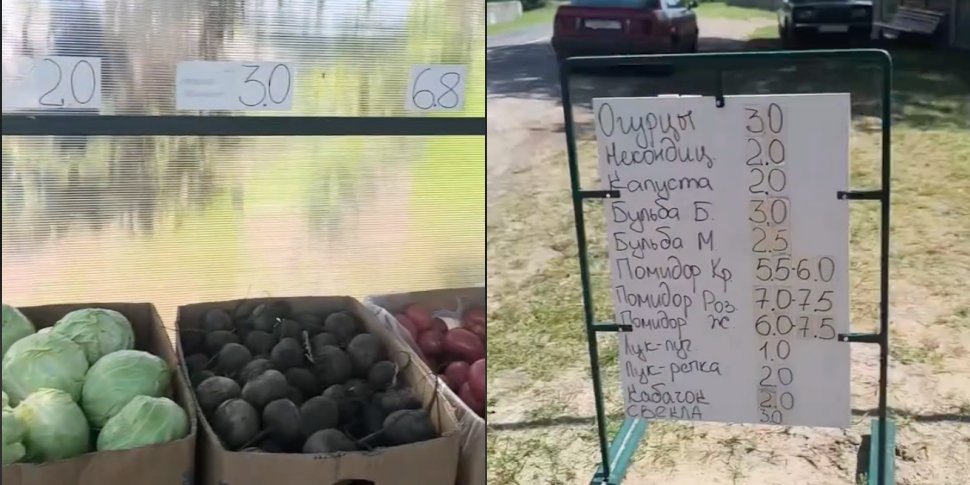 2.0
3.0
6.8
Огурцы 3.0
Некондиц. 2.0
Капуста 2.0
Бульба Б. 3.0
Бульба М. 2.5
Помидор Кр. 5.5-6.0
Помидор Роз. 7.0-7.5
Помидор Ж. 6.0-7.5
Лук-пуч. 1.0
Лук-репка 2.0
Кабачок 2.0
СВЕКЛА 3.0